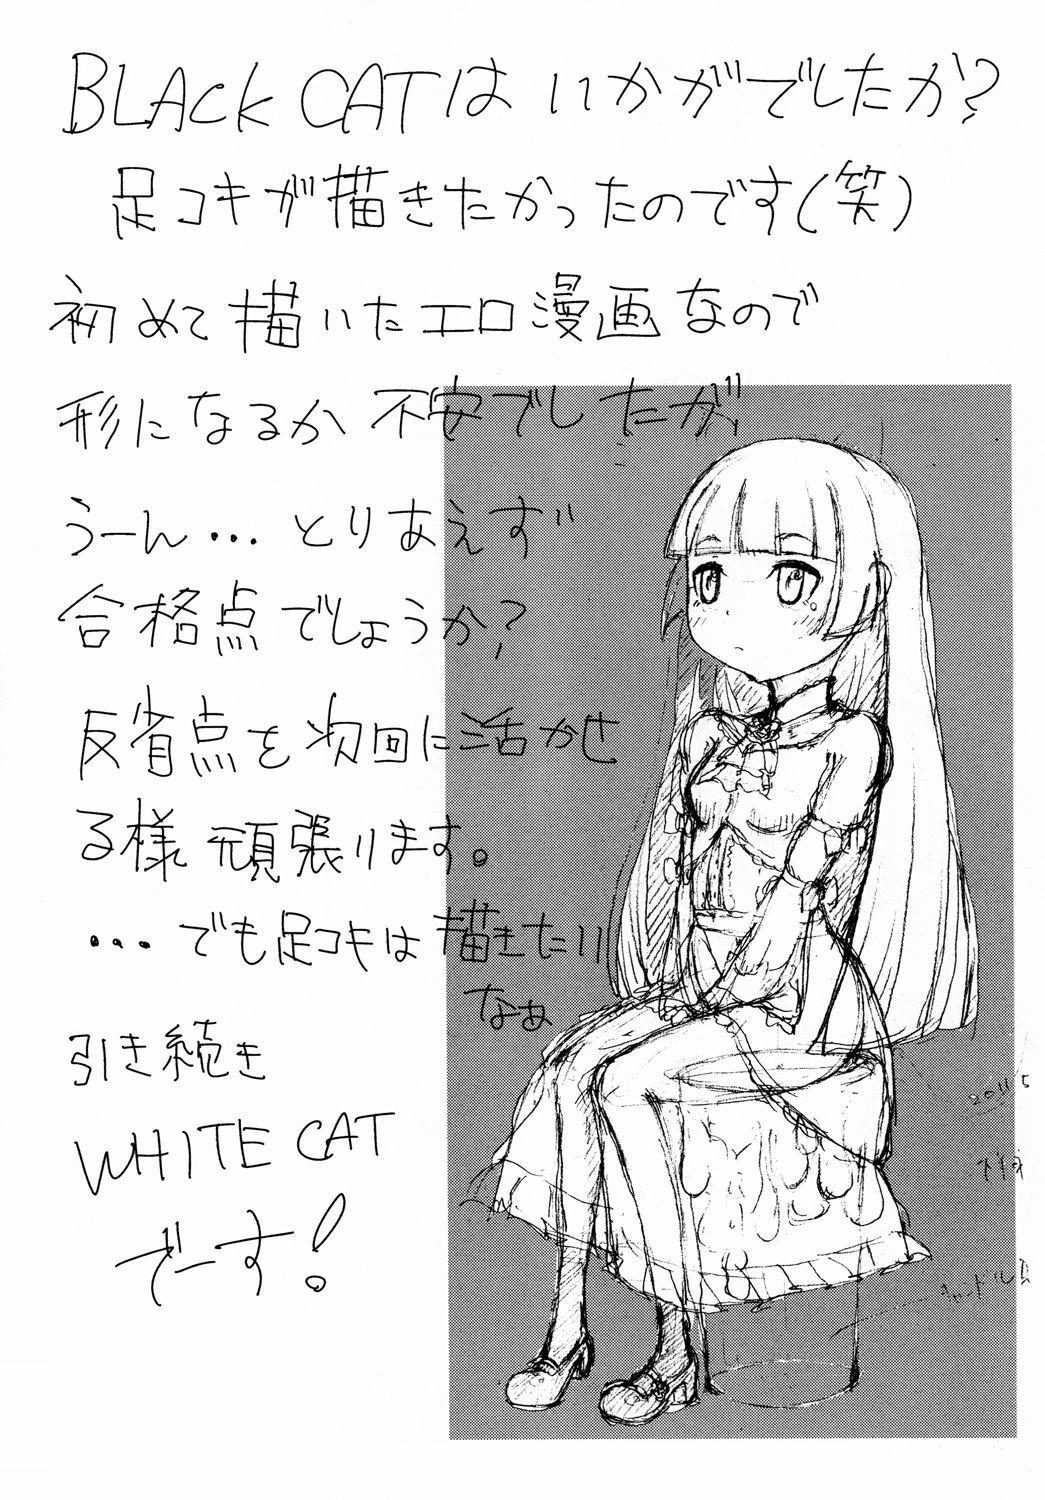 BLACK CATは いかがでしたか？
足コキが描きたかったのです(笑)
初めて描いたエロ漫画なので
形になるか不安でしたが
うーん…とりあえず
合格点でしょうか？
反省点を次回に活かせ
る様頑張ります。
…でも足コキは描きたい
なぁ
引き続き
WHITE CAT
でーす！
2011